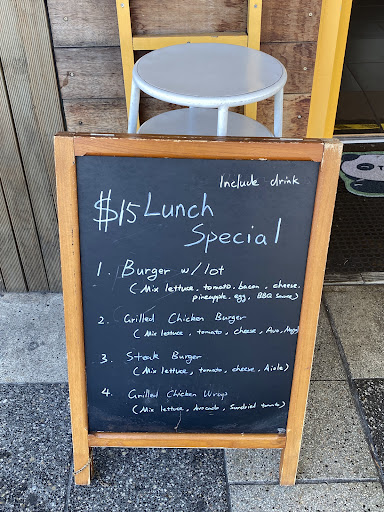 Include drink
$15 Lunch
Special
1. Burger w/ lot
(Mix lettuce, tomato, bacon, cheese,
pineapple, egg, BBQ sauce)
2. Grilled Chicken Burger
(Mix lettuce, tomato, cheese, Avo, Mayo)
3. Steak Burger
(Mix lettuce, tomato, cheese, Aiole)
4. Grilled Chicken Wraps
(Mix lettuce, Avocado, Sundried tomato)